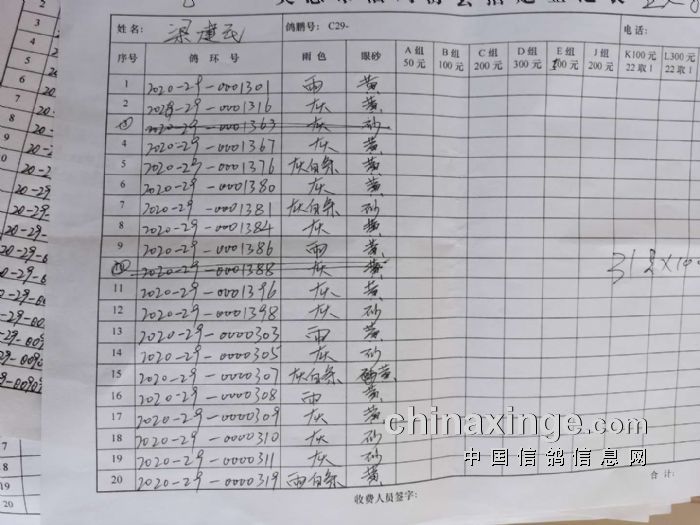 姓名: 梁建民 鸽棚号: C29- 电话:
序号 鸽 环 号 雨 色 眼砂 A组 50元 B组 100元 C组 200元 D组 300元 E组 500元 J组 200元 K100元 22取1 L300元 22取1
1 2020-29-0001301 雨 黄
2 2020-29-0001316 灰 黄
3 2020-29-0001363 灰 砂
4 2020-29-0001367 灰 黄
5 2020-29-0001376 灰白条 黄
6 2020-29-0001380 灰 黄
7 2020-29-0001381 灰白条 砂
8 2020-29-0001384 灰 黄
9 2020-29-0001386 雨 黄
10 2020-29-0001388 灰 黄
11 2020-29-0001396 灰 黄
12 2020-29-0001398 灰 砂
13 2020-29-0000303 雨 黄
14 2020-29-0000305 灰 砂
15 2020-29-0000307 灰白条 黄
16 2020-29-0000308 雨 黄
17 2020-29-0000309 灰 黄
18 2020-29-0000310 灰 砂
19 2020-29-0000311 灰 砂
20 2020-29-0000319 雨白条 黄
收费人员签字: 合计:
chinaxinge.com
中国信鸽信息网